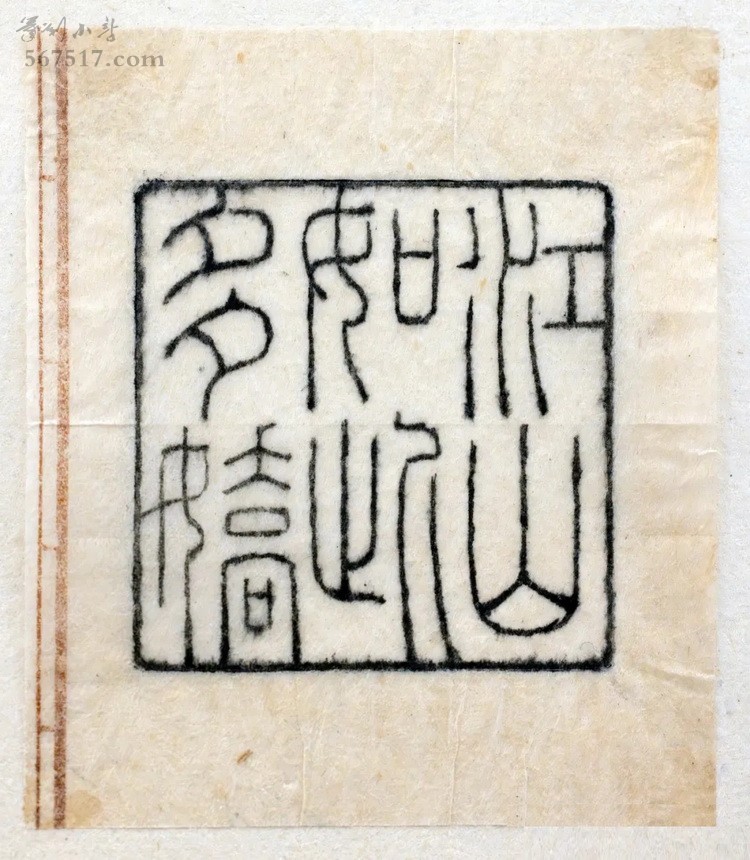 篆刻小站
567517.com
江山
如此
多娇